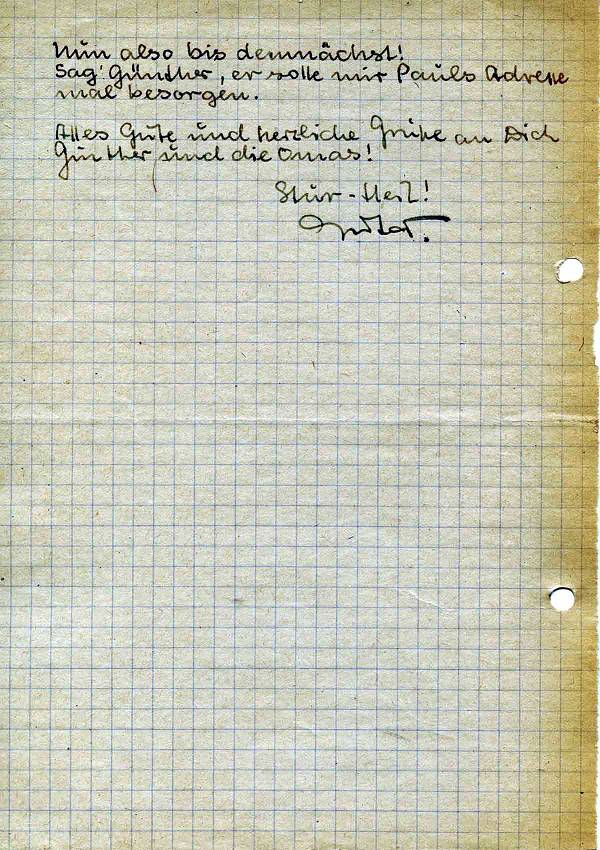 Nun also bis demnächst!
Sag' Günther, er solle mir Pauls Adresse
mal besorgen.
Alles Gute und herzliche Grüße an Dich
Günther und die Omas!
Stur-Heil!